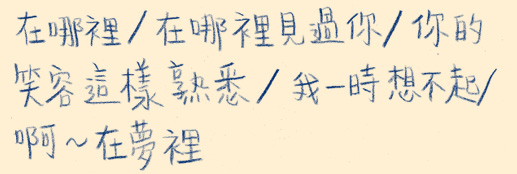 在哪裡/在哪裡見過你/你的
笑容這樣熟悉/我一時想不起/
啊~在夢裡